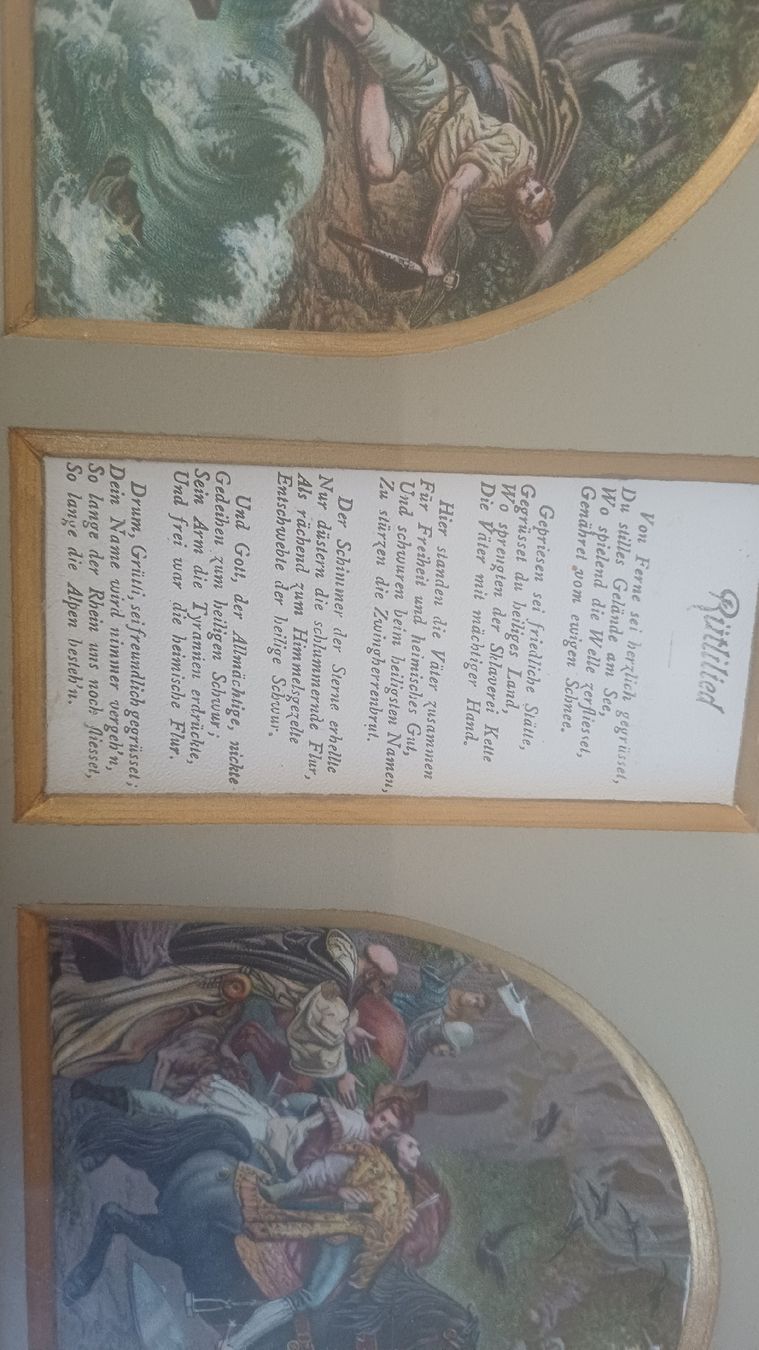 Rütlilied
Von Ferne sei herzlich gegrüsset,
Du stilles Gelände am See,
Wo spielend die Welle zerfliesset,
Genähret vom ewigen Schnee.
Gepriesen sei friedliche Stätte,
Gegrüsset du heiliges Land,
Wo sprengten der Sklaverei Kette
Die Väter mit mächtiger Hand.
Hier standen die Väter zusammen
Für Freiheit und heimisches Gut,
Und schwuren beim heiligsten Namen,
Zu stürzen die Zwingherrenbrut.
Der Schimmer der Sterne erhellte
Nur düstern die schlummernde Flur,
Als rächend zum Himmelsgezelte
Entschwebte der heilige Schwur.
Und Gott, der Allmächtige, nickte
Gedeihen zum heiligen Schwur;
Sein Arm die Tyrannen erdrückte,
Und frei war die heimische Flur.
Drum, Grütli, sei freundlich gegrüsset;
Dein Name wird nimmer vergeh'n,
So lange der Rhein uns noch fliesset,
So lange die Alpen besteh'n.